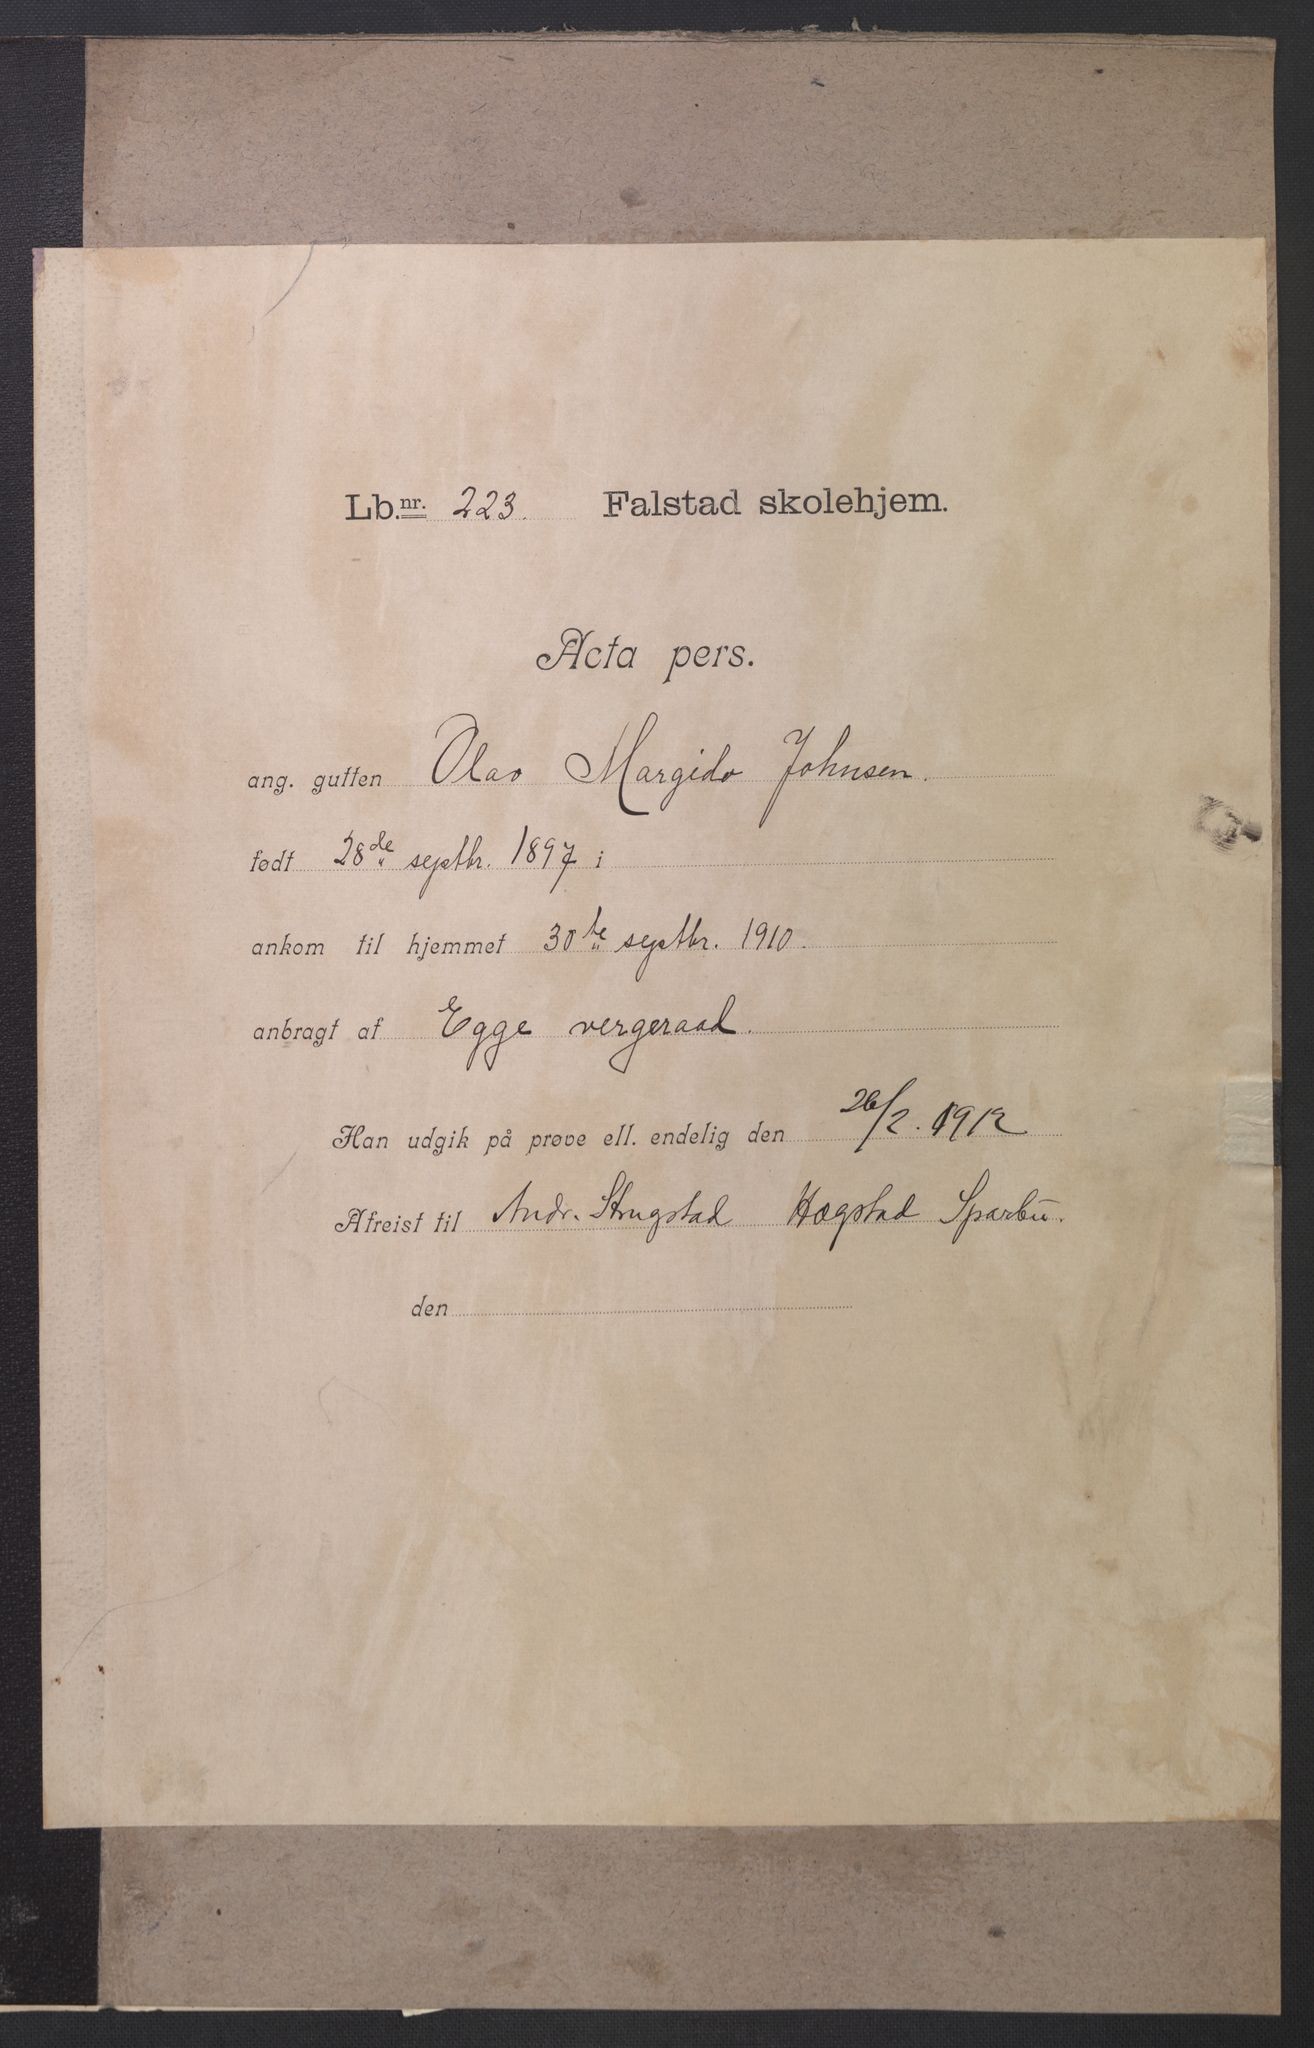 Lb.nr. 223. Falstad skolehjem.
Acta pers.
ang. gutten Olav Margido Johnsen.
født 28de septbr. 1897 i
ankom til hjemmet 30te septbr. 1910.
anbragt af Egge vergeraad.
Han udgik på prøve ell. endelig den 26/2. 1912
Afreist til Andr. Strugstad Hægstad Sparbu.
den